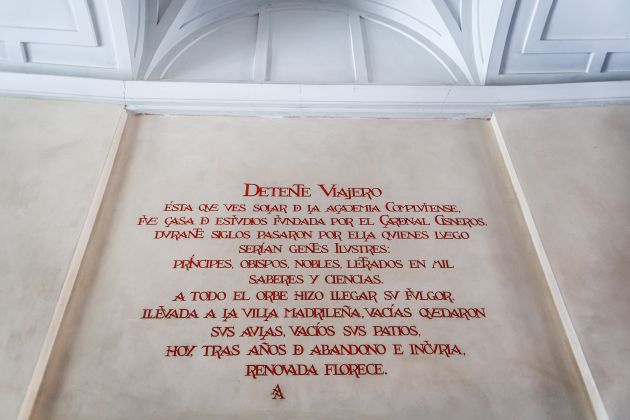 DETENTE VIAJERO
ÉSTA QUE VES SOLAR D LA ACADEMIA COMPLVTENSE,
FVE CASA D ESTVDIOS FVNDADA POR EL CARDENAL CISNEROS.
DVRANTE SIGLOS PASARON POR ELLA QVIENES LVEGO
SERÍAN GENTES ILVSTRES:
PRÍNCIPES, OBISPOS, NOBLES, LETRADOS EN MIL
SABERES Y CIENCIAS.
A TODO EL ORBE HIZO LLEGAR SV FVLGOR.
LLEVADA A LA VILLA MADRILEÑA, VACÍAS QVEDARON
SVS AVLAS, VACÍOS SVS PATIOS,
HOY, TRAS AÑOS D ABANDONO E INCVRIA,
RENOVADA FLORECE.
A